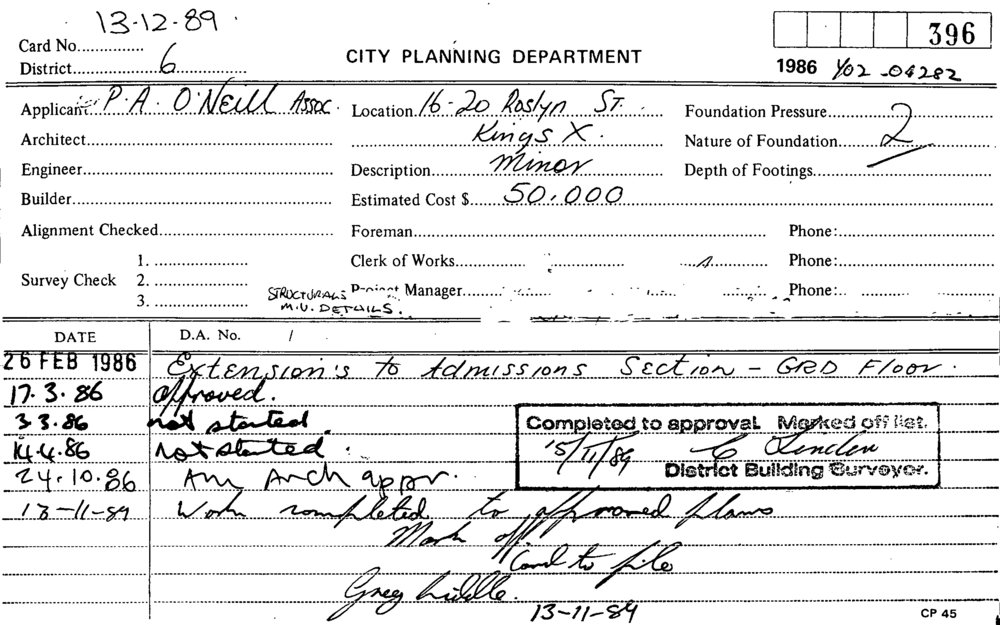 13-12-89
Card No.
396
District 6
CITY PLANNING DEPARTMENT
1986 Y02-04282
Applicant P.A. O'Neill Assoc.
Location 16-20 Roslyn St.
Foundation Pressure
Architect
Kings X.
Nature of Foundation 2
Engineer
Description Minor
Depth of Footings
Builder
Estimated Cost $ 50,000
Alignment Checked
Foreman
Phone:
Survey Check
1.
2.
3.
Clerk of Works
Phone:
STRUCTURALS
M.V. DETAILS.
Project Manager
Phone:
DATE
D.A. No.
26 FEB 1986 Extension's to Admissions Section - GRD Floor.
17.3.86 approved.
3.3.86 not started.
14.4.86 Not started.
24.10.86 Am Arch appr.
Completed to approval. Marked off list.
15/11/89
District Building Surveyor.
13-11-89 Work completed to approved plans
Mark off
Card to file
Greg Liddle.
13-11-89
CP 45